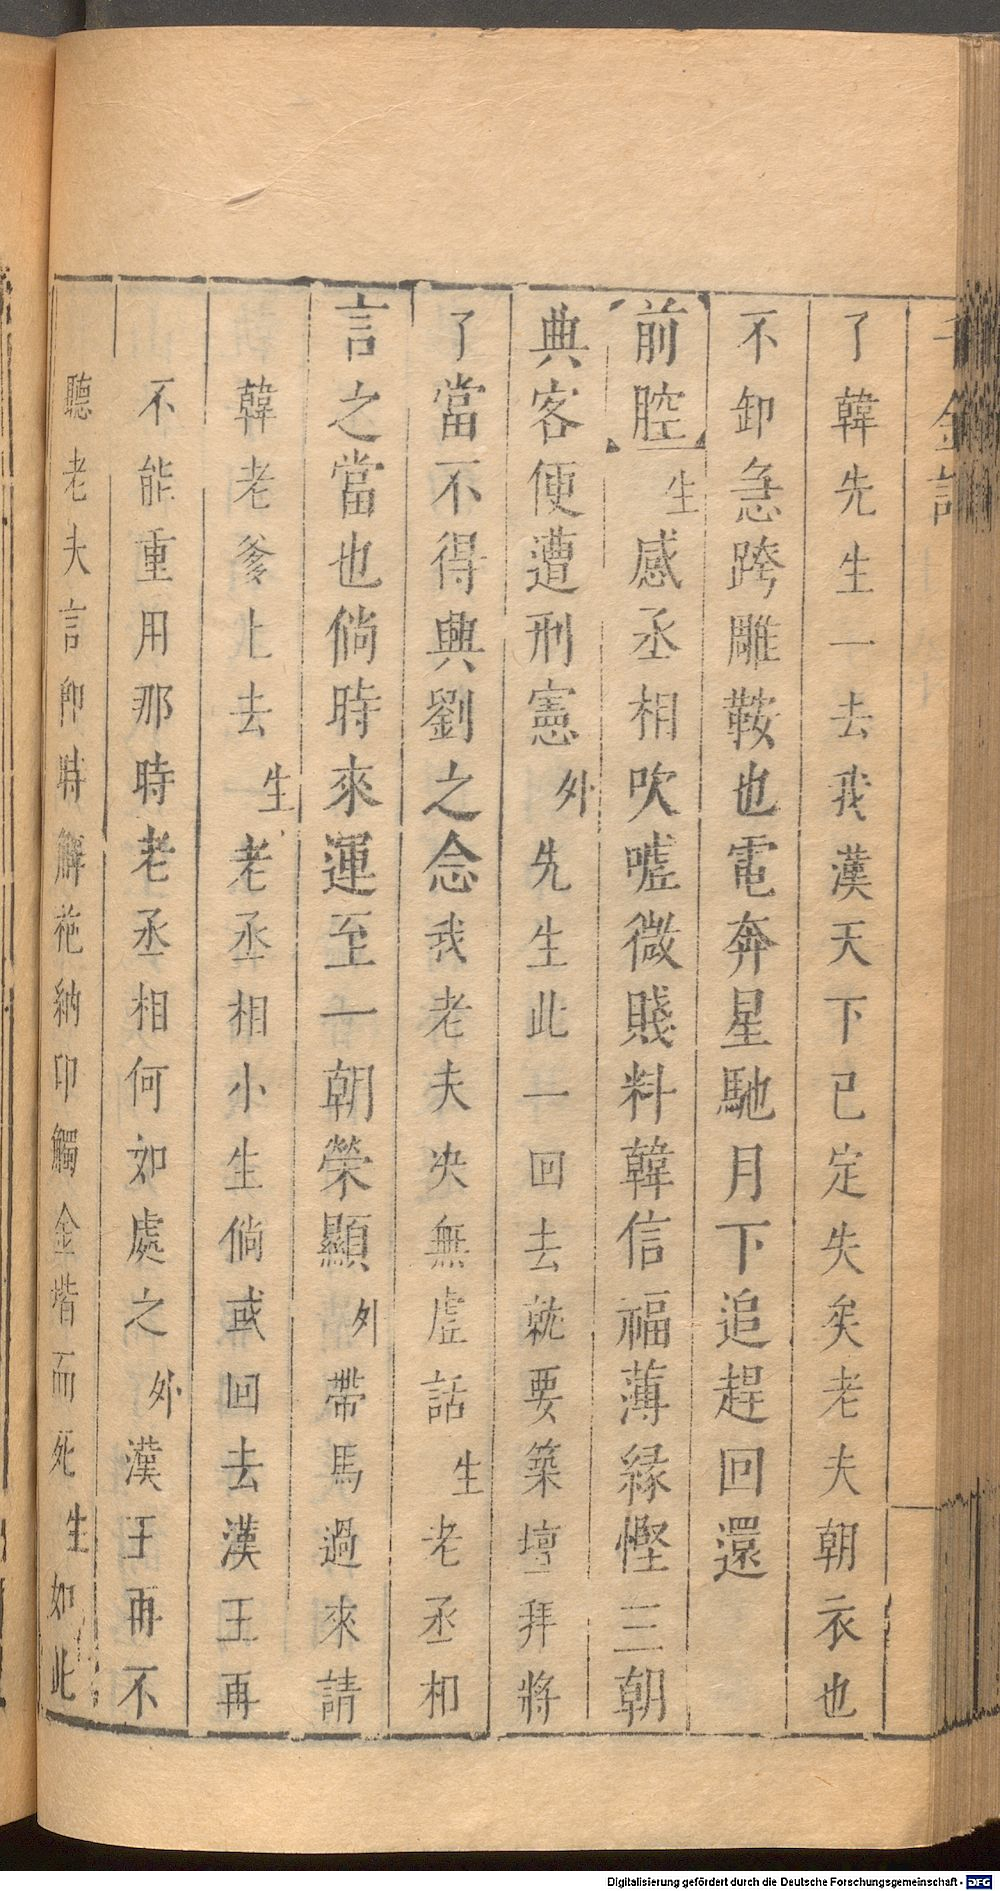 千金記
了韓先生一去我漢天下已定失矣老夫朝衣也
不卸急跨雕鞍也電奔星馳月下追趕回還
前腔生感丞相吹噓微賤料韓信福薄緣慳三朝
典客便遭刑憲外先生此一回去就要築壇拜將
了當不得興劉之念我老夫决無虛話生老丞相
言之當也倘時來運至一朝榮顯外帶馬過來請
韓老爹上去生老丞相小生倘或回去漢王再
不能重用那時老丞相何如處之外漢王再不
聽老夫言卽時解袍納印觸金堦而死生如此
Digitalisierung gefördert durch die Deutsche Forschungsgemeinschaft - DFG